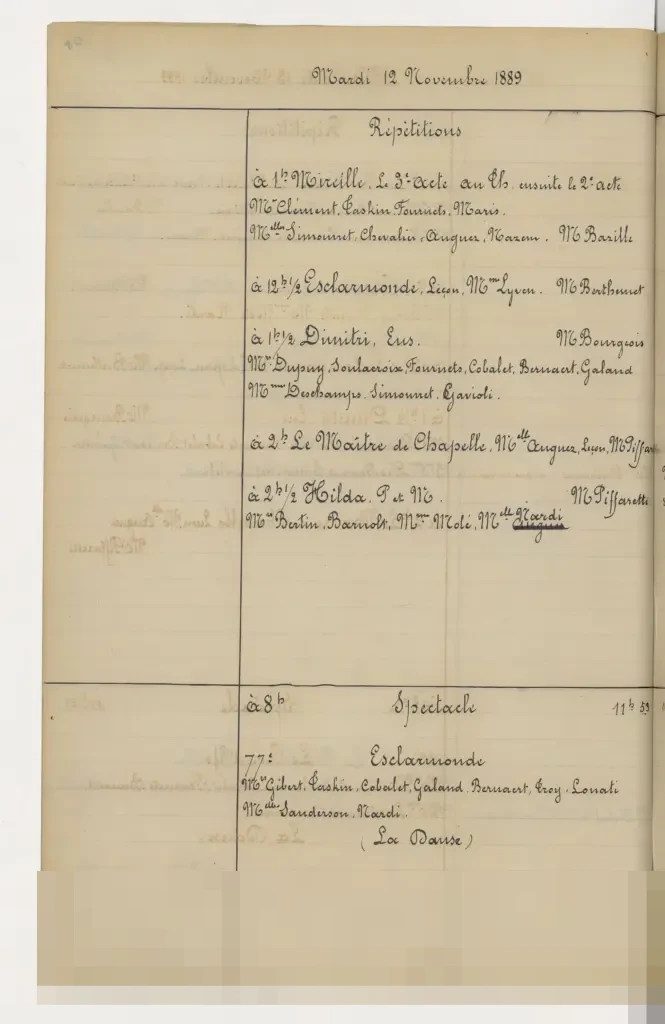 Mardi 12 Novembre 1889
Répétitions
à 1h Mireille. Le 3e acte au Th. ensuite le 2e acte
Mrs Clément, Taskin, Fournets, Maris.
Melles Simonnet, Chevalier, Auguez, Nazem. M Bazille
à 12h 1/2 Esclarmonde, Leçon, Mme Lyven. M Berthemet
à 1h 1/2 Dimitri, Ens. M Bourgeois
Mrs Dupuy, Soulacroix, Fournets, Cobalet, Bernaert, Galand
Mmes Deschamps. Simonnet. Gavioli.
à 2h Le Maître de Chapelle, Melle Auguez, Leçon, M Piffar
à 2h 1/2 Hilda. P et M. M Piffaretti
Mrs Bertin, Barnolt, Mme Molé, Melle Nardi
Auguez
à 8h Spectacle 11h 53
77e Esclarmonde
Mrs Gibert, Taskin, Cobalet, Galand. Bernaert, Troy, Lonati
Melles Sanderson, Nardi.
(La Danse)